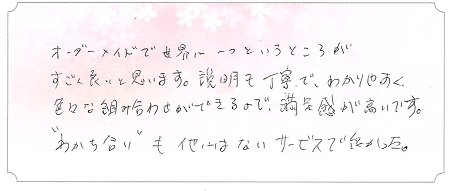 オーダーメイドで世界に一つというところが
すごく良いと思います。説明も丁寧で、わかりやすく
色々な組み合わせができるので、満足感が高いです。
"わかち合い"も他にはないサービスで良かった。